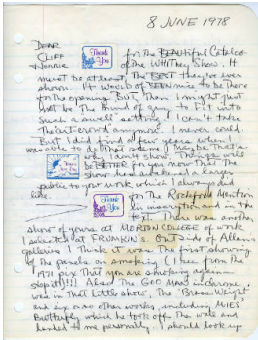 8 JUNE 1978
DEAR
CLIFF
Thank You
for the BEAUTIFUL Catalog
of the WHITNEY Show. It
must be at least the BEST they've ever
shown. It would of BEEN nice to be there
for the opening But, then I might just
not be the kind of guy to fit into
such a swell setting! I can't take
the art crowd anymore. I never could.
But I did for a few years when I
was able to do
why I don't show. Things will
be BETTER for you now that the
show has awakened a larger
public to your work which I always did
like.
Thank You
for the Rockford Mention
in the
text. There was another
show of yours at MORTON COLLEGE of work
I selected at FRUMKIN'S. Outside of Allans
galleries I think it was the first showing
of the panels on smoking (I see from the
1971 pix that you are smoking again-
stop it!!!) Also The GOD MAN
was in that little show, The "Brown Weight
and six or so other works, including
Butterfly which he took off the wall and
handed to me personally. I should look up